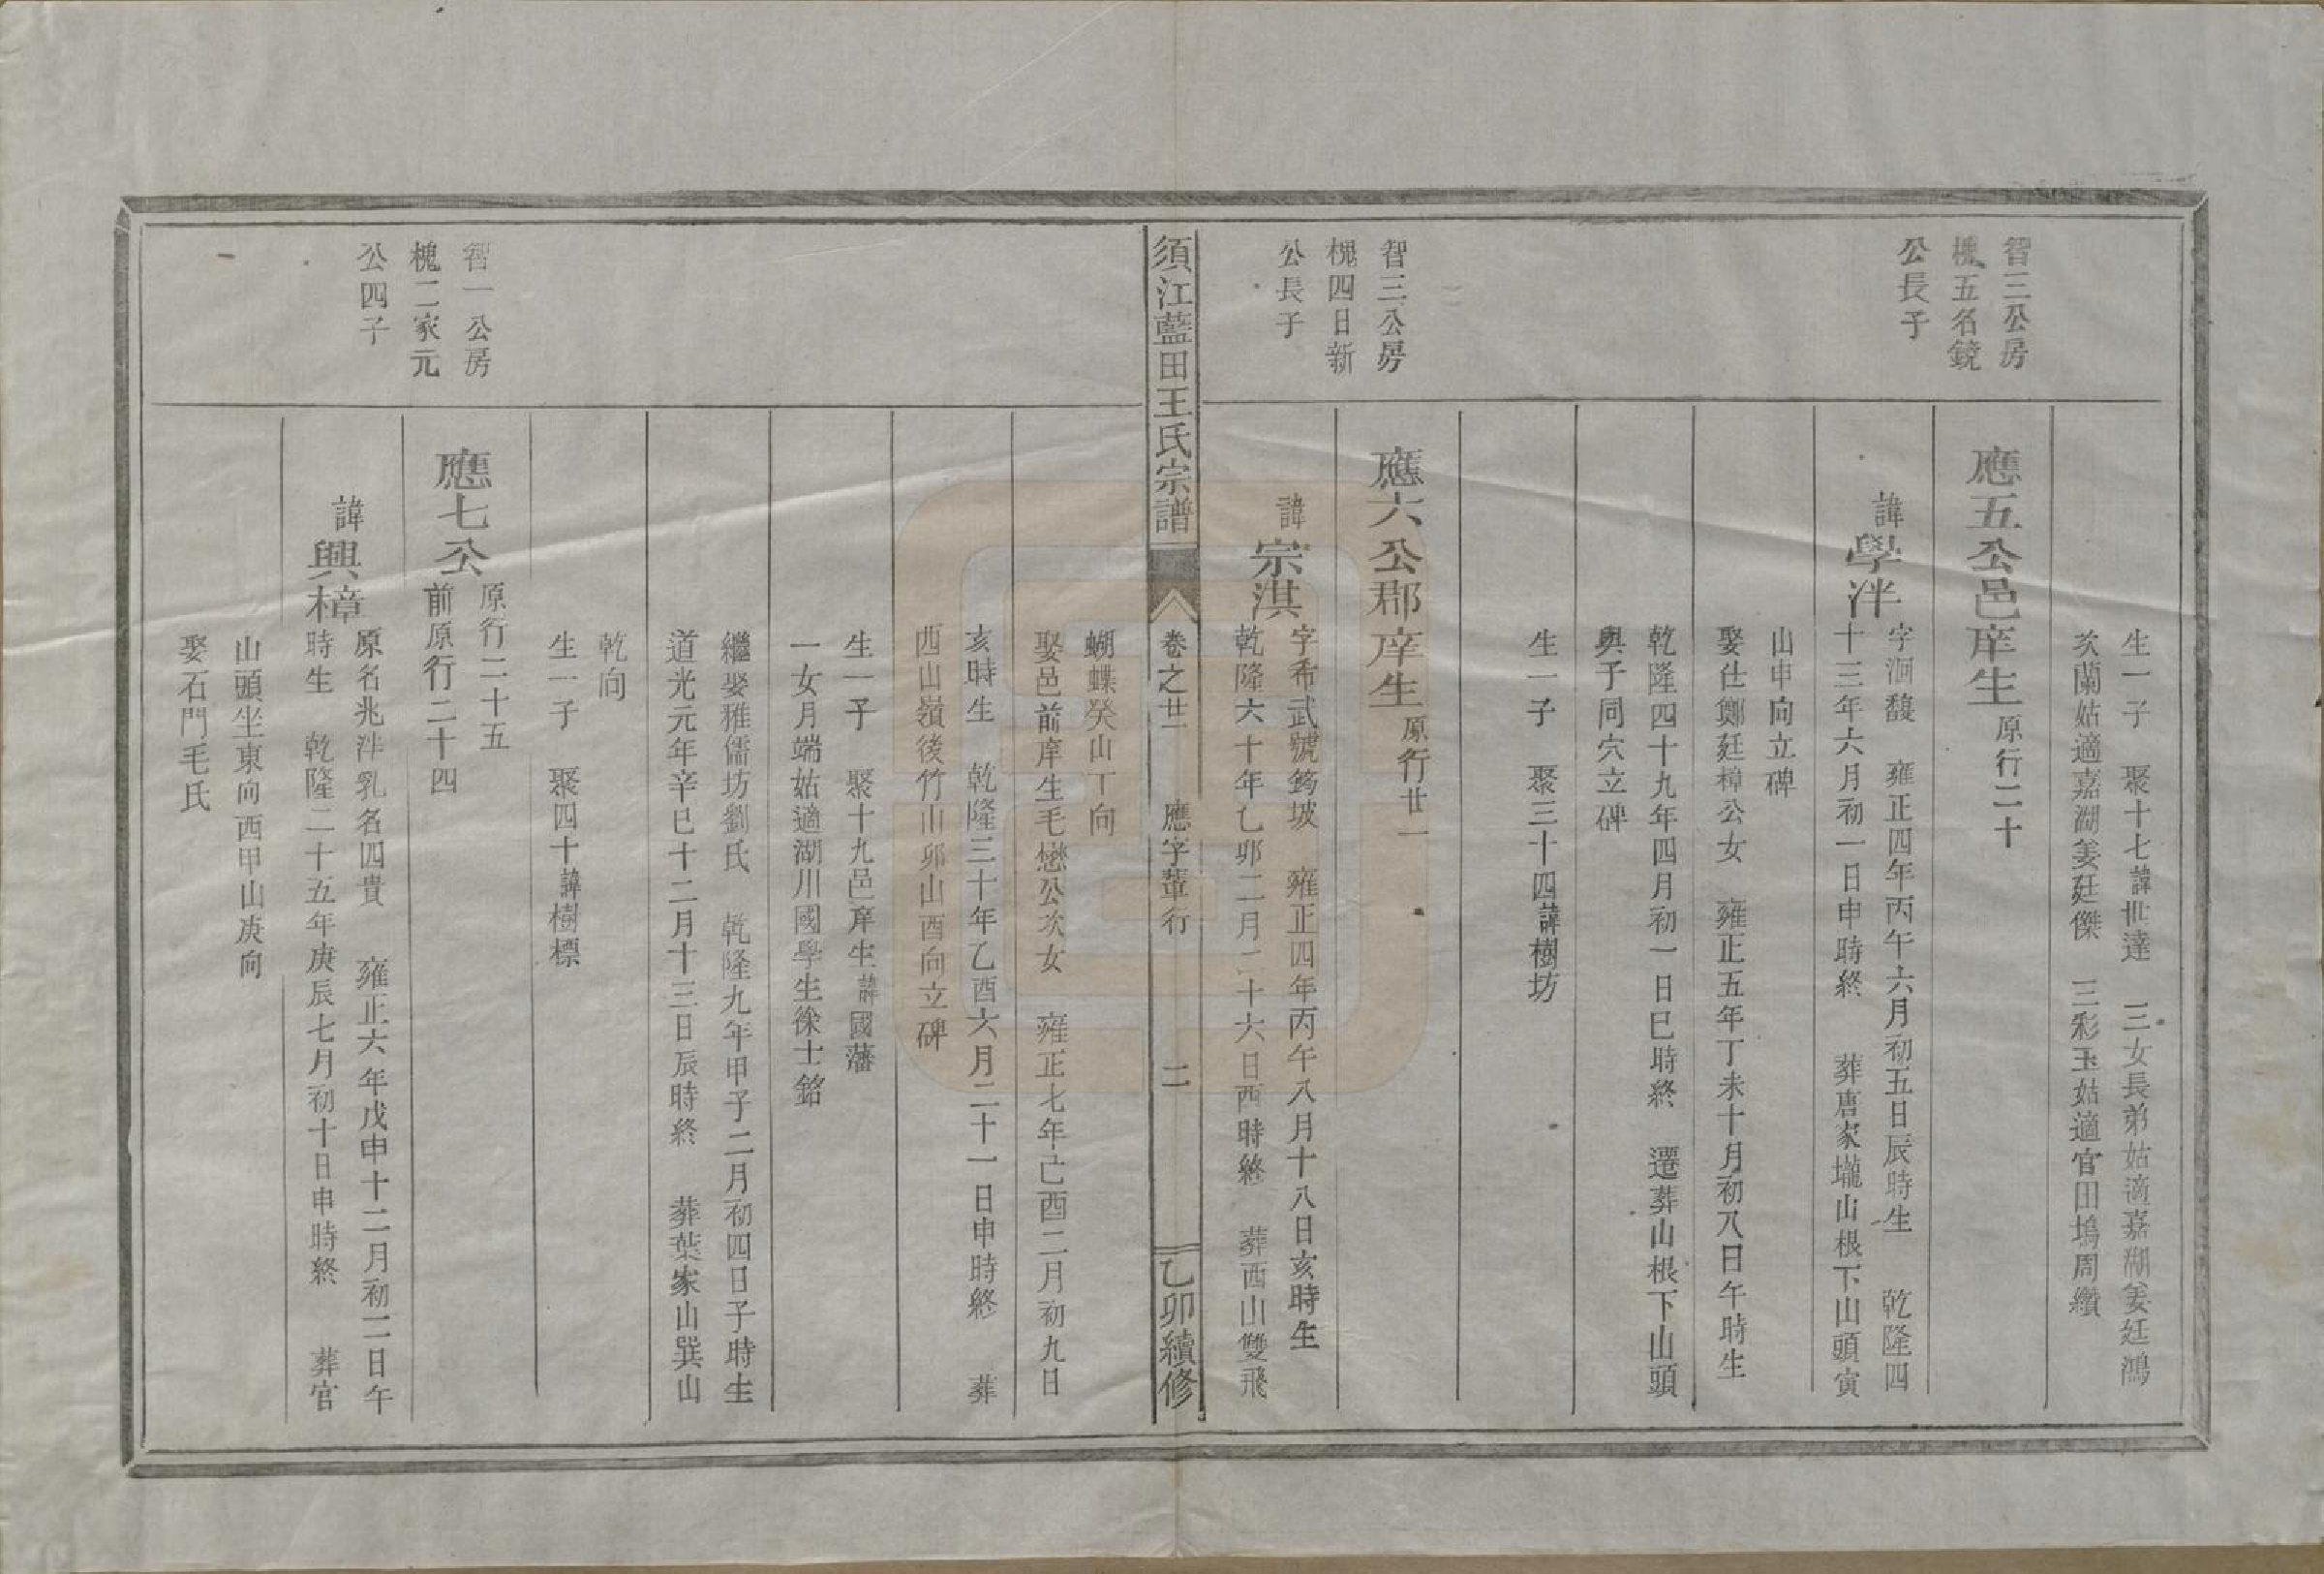 生一子　聚十七諱世達　三女長弟姑適嘉湖姜廷鴻
次蘭姑適嘉湖姜廷傑　三彩玉姑適官田塢周纘
智三公房
槐五名鏡
公長子
應五公邑庠生原行二十
諱學泮
字泂馥　雍正四年丙午六月初五日辰時生　乾隆四
十三年六月初一日申時終　葬唐家壠山根下山頭寅
山申向立碑
娶仕鄭廷樟公女　雍正五年丁未十月初八日午時生
乾隆四十九年四月初一日巳時終　遷葬山根下山頭
與子同穴立碑
生一子　聚三十四諱樹坊
智三公房
槐四日新
公長子
應六公郡庠生原行廿一
諱宗淇
字希武號筠坡　雍正四年丙午八月十八日亥時生
乾隆六十年乙卯二月二十六日酉時終　葬西山雙飛
須江藍田王氏宗譜
卷之廿一　應字輩行　二
乙卯續修
蝴蝶癸山丁向
娶邑前庠生毛懋公次女　雍正七年己酉二月初九日
亥時生　乾隆三十年乙酉六月二十一日申時終　葬
西山嶺後竹山卯山酉向立碑
生一子　聚十九邑庠生諱國藩
一女月端姑適湖川國學生徐士銘
繼娶雅儒坊劉氏　乾隆九年甲子二月初四日子時生
道光元年辛巳十二月十三日辰時終　葬葉家山巽山
乾向
生一子　聚四十諱樹標
智一公房
槐二家元
公四子
應七公
原行二十五
前原行二十四
諱興樟
原名兆泮乳名四貴　雍正六年戊申十二月初二日午
時生　乾隆二十五年庚辰七月初十日申時終　葬官
山頭坐東向西甲山庚向
娶石門毛氏